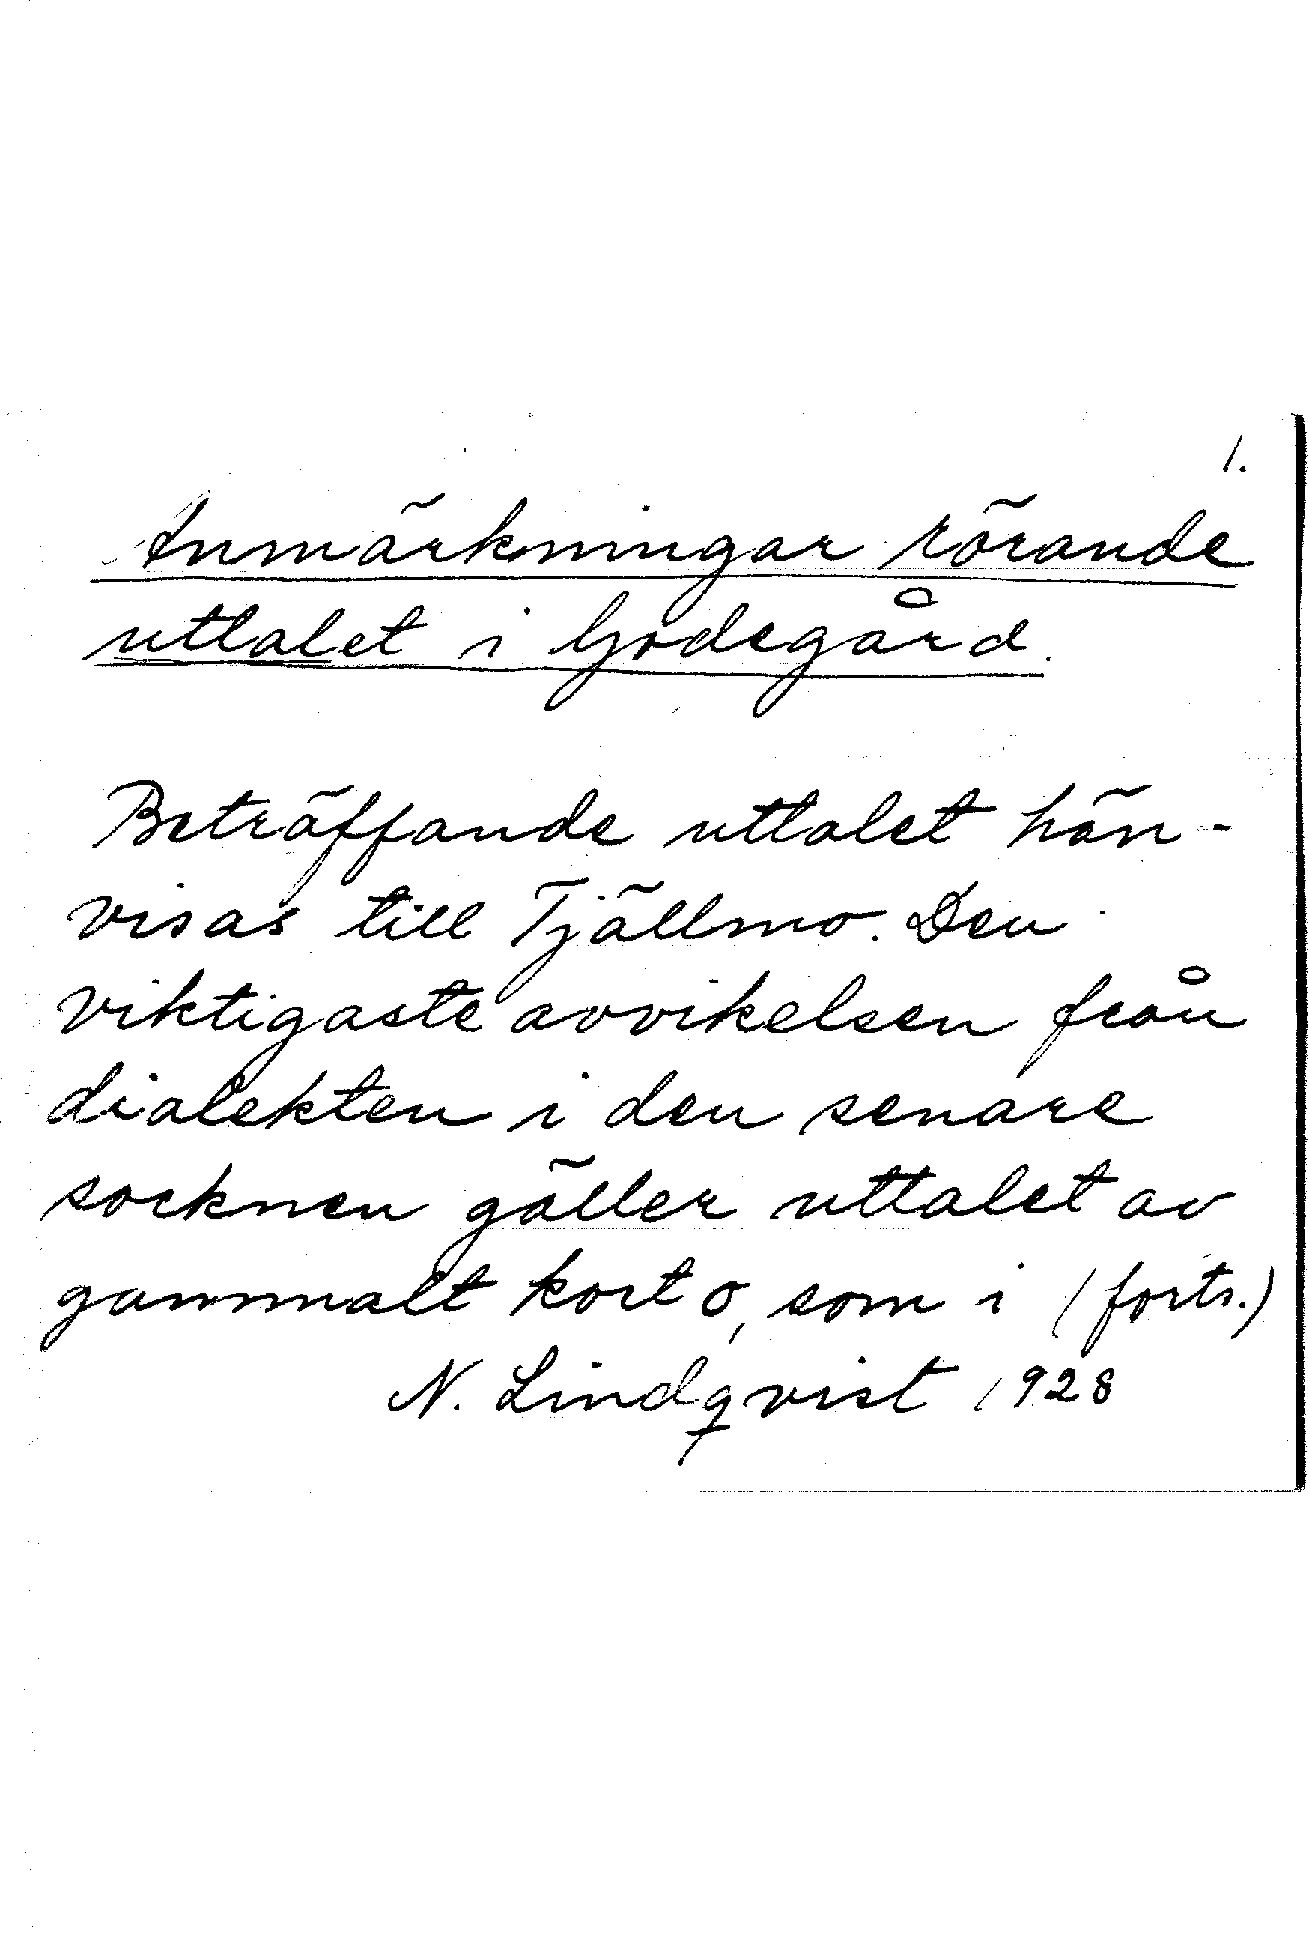 1.
Anmärkningar rörande
uttalet i Godegård.
Beträffande uttalet hän-
visas till Tjällmo. Den
viktigaste avvikelsen från
dialekten i den senare
socknen gäller uttalet av
gammalt kort o, som i (forts.)
N. Lindqvist 1928